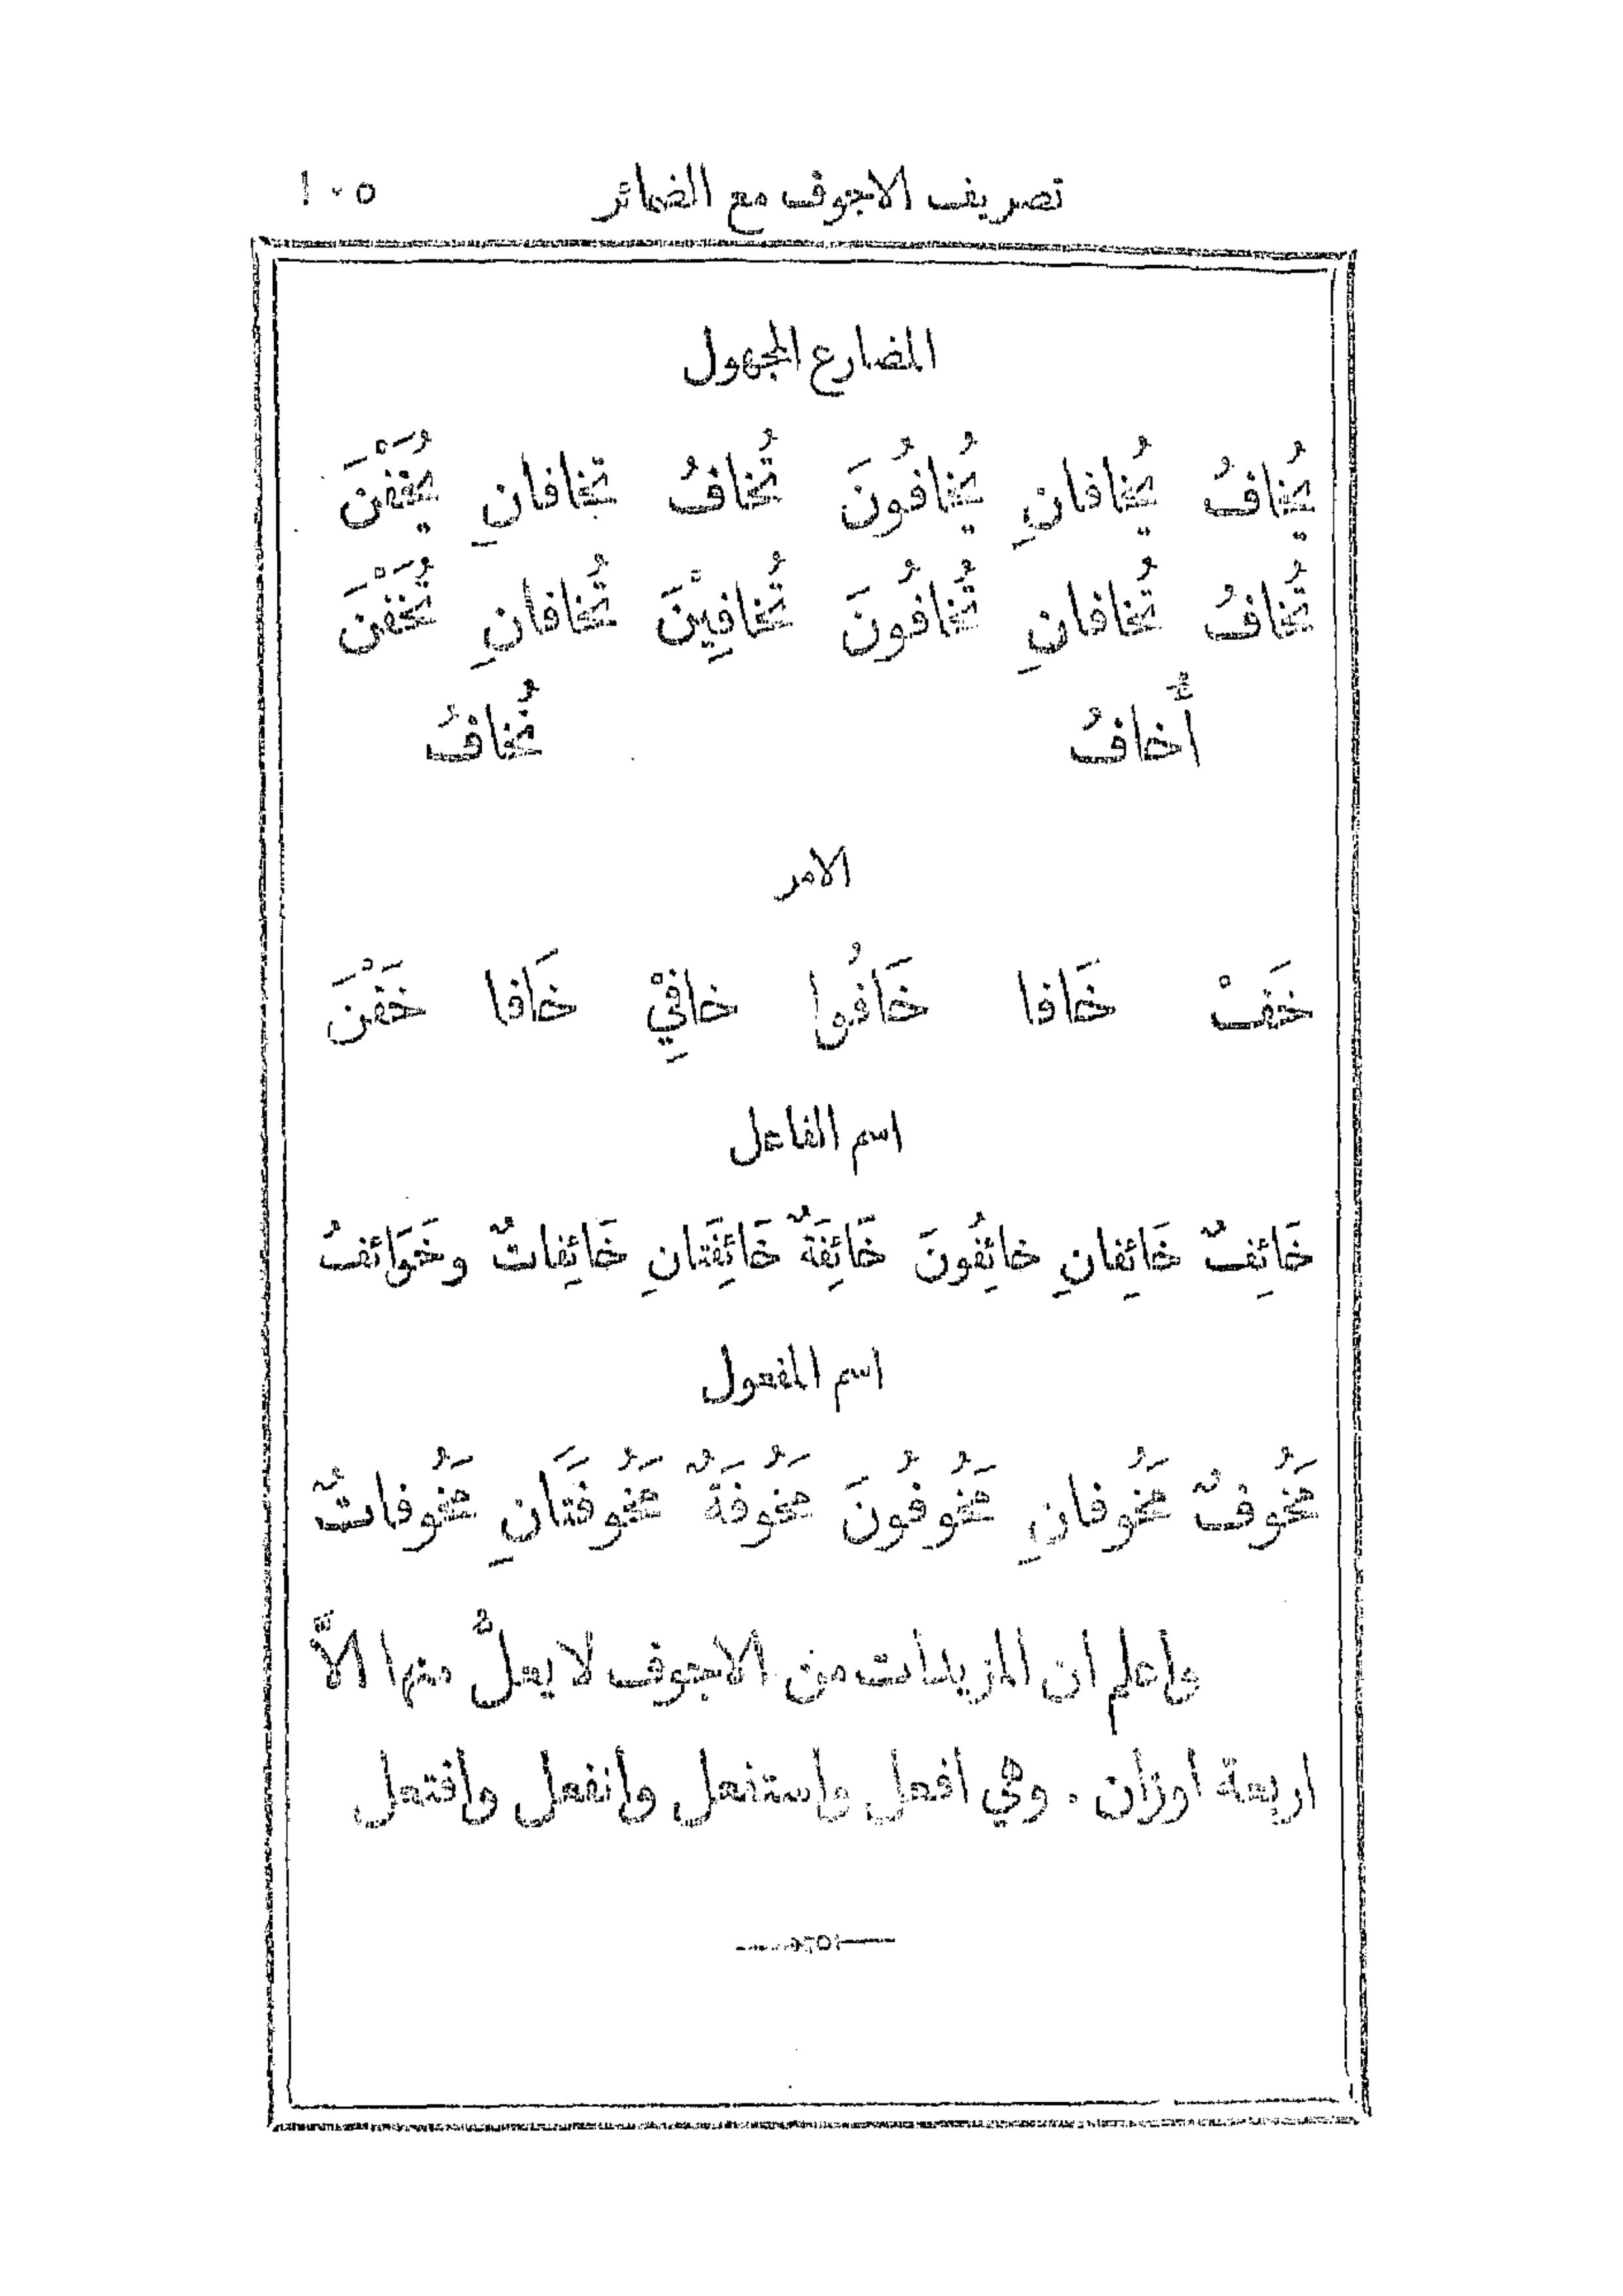 تصريف الاجوف مع الضمائر ١٠٥
المضارع المجهول
يُخافُ يُخافانِ يُخافُونَ تُخافُ تخافانِ يُخَفْنَ
تُخافُ تُخافانِ تُخافُونَ تُخافِيْنَ تُخافانِ تُخَفْنَ
أُخافُ نُخافُ
الامر
خَفْ خَافا خَافُوا خافِيْ خَافا خَفْنَ
اسم الفاعل
خَائِفٌ خَائِفانِ خائِفُونَ خَائِفَةٌ خَائِفَتانِ خَائِفاتٌ وخَوَائفُ
اسم المفعول
مَخُوفٌ مَخُوفانِ مَخُوفُونَ مَخُوفَةٌ مَخُوفَتَانِ مَخُوفاتٌ
واعلم ان المزيدات من الاجوف لا يعلُّ منها الاَّ
اربعة اوزان . وهي أفعل واستفعل وانفعل وافتعل